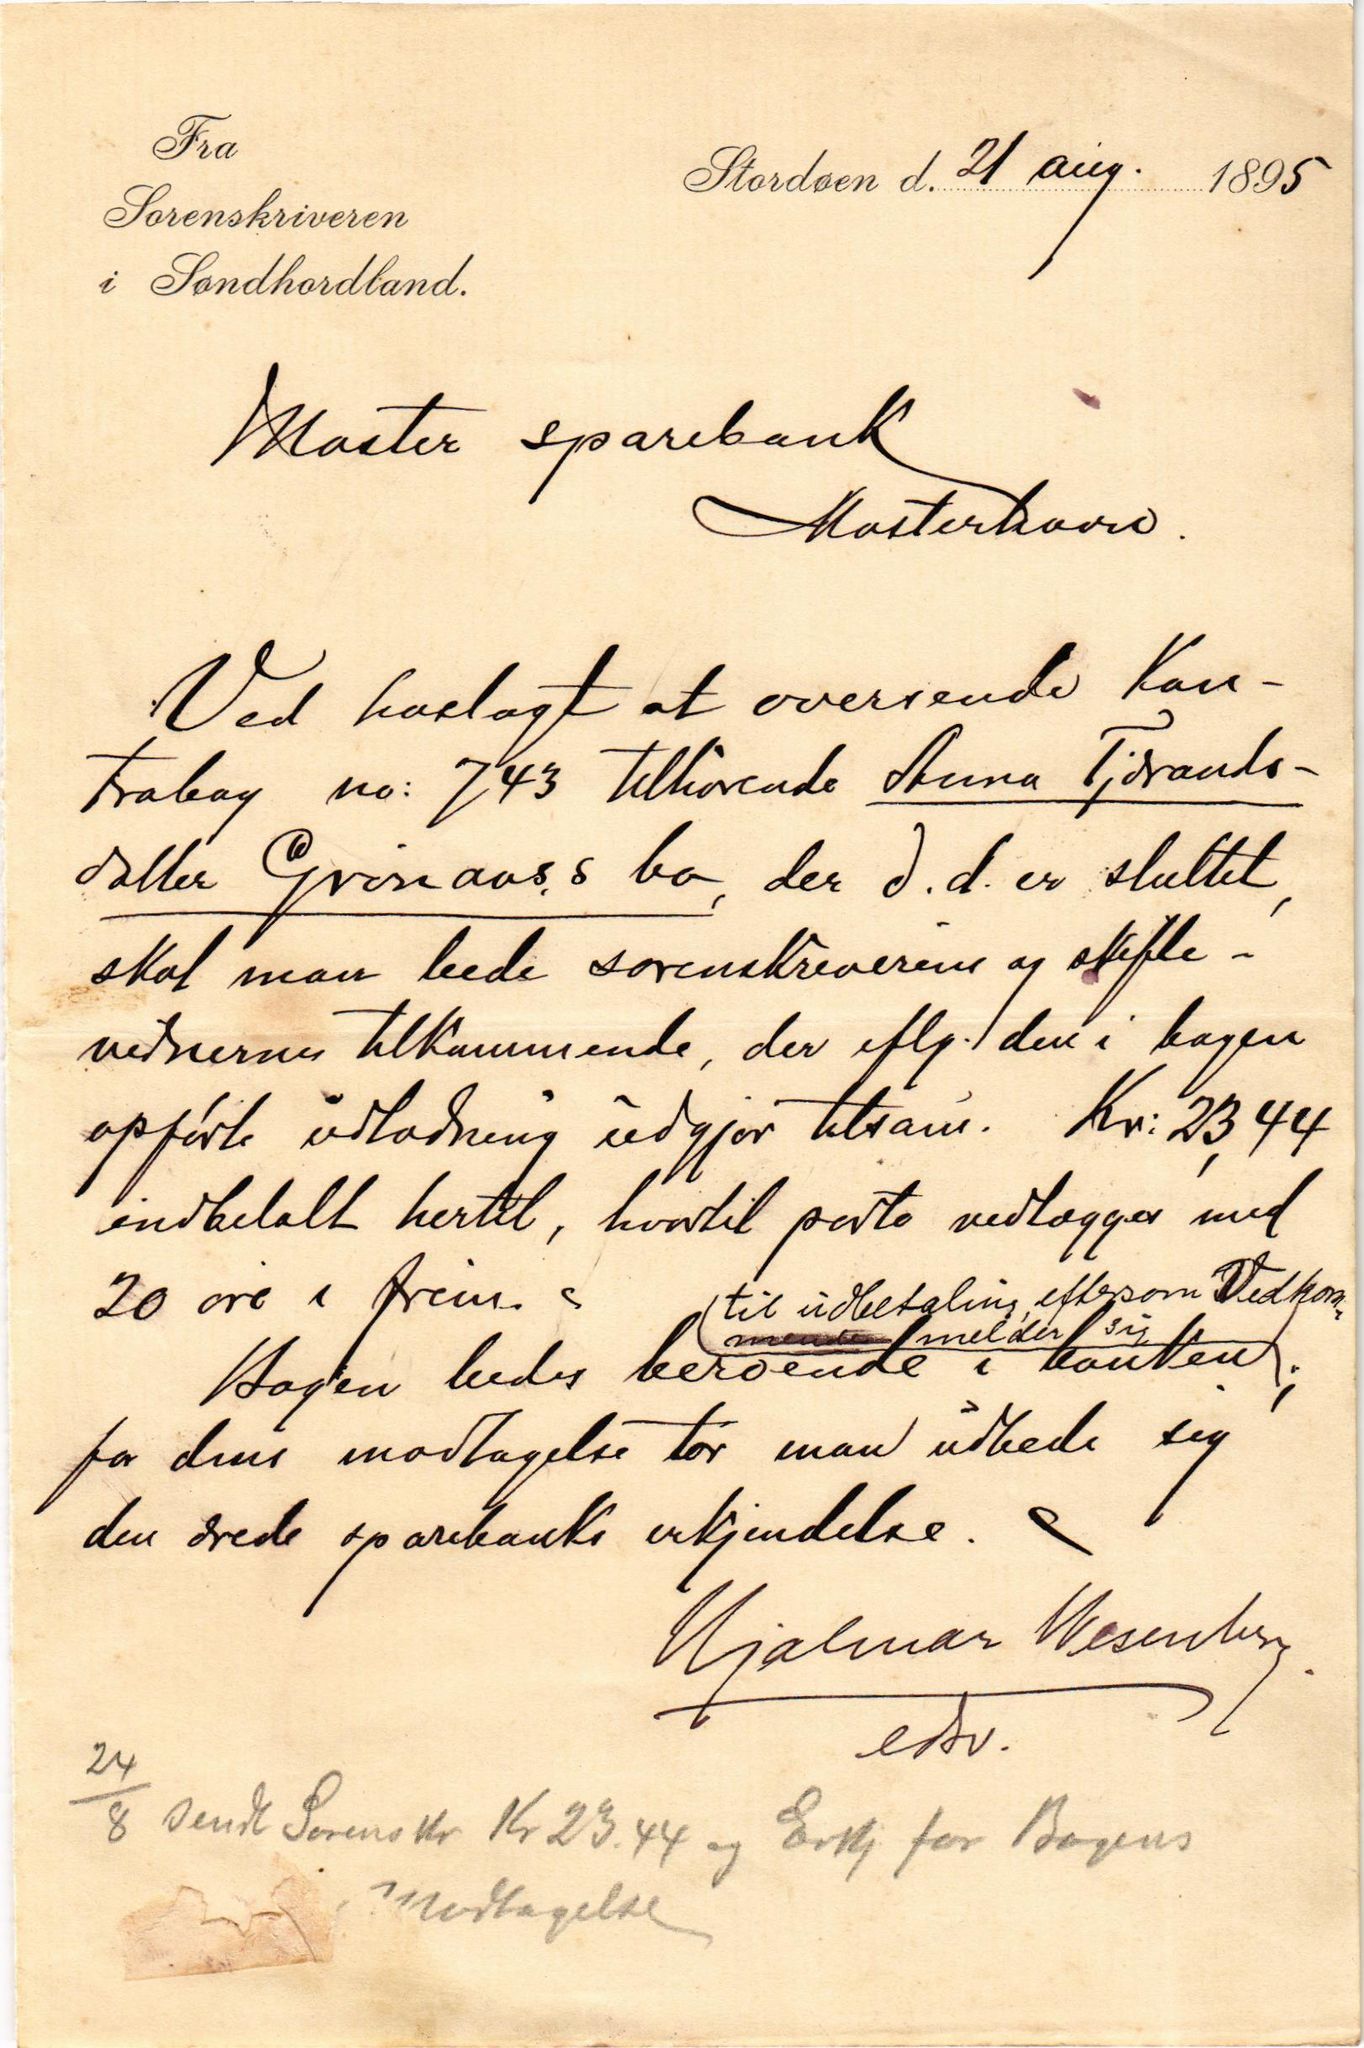 Fra
Sorenskriveren
i Søndhordland.
Stordøen d. 21 aug. 1895
Moster sparebank
Mosterhavn.
Ved hoslagt at oversende Kon-
trabog no: 743 tilhørende Anna Tjærands-
datter Grönaas,s bo, der d.d. er sluttet,
skal man bede sorenskriverens og skifte-
vidnernes tilkommende, der iflg. den i bogen
opförte udlodning udgjør tilsam. Kr: 23,44
indbetalt hertil, hvortil porto vedlægges med
20 øre i frim.
til udbetaling, eftersom Vedkom-
mende melder sig
Bogen bedes beroende i banken;
for dens modtagelse tör man udbede sig
den ærede sparebanks erkjendelse.
Hjalmar Wesenberg.
edsv.
24/8 sendt Sorenskr Kr 23.44 og Erkj for Bogens
Modtagelse